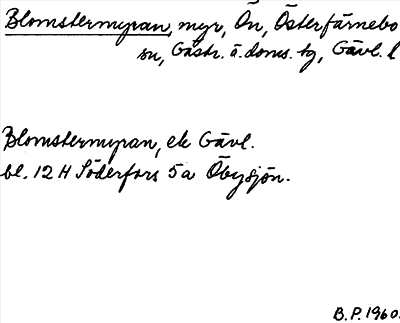 Blomstermyran, myr, Ön, Österfärnebo
sn, Gästr. ö. doms. tg, Gävl. l
Blomstermyran, ek Gävl.
bl. 12 H Söderfors 5a Öbysjön.
B.P. 1960.